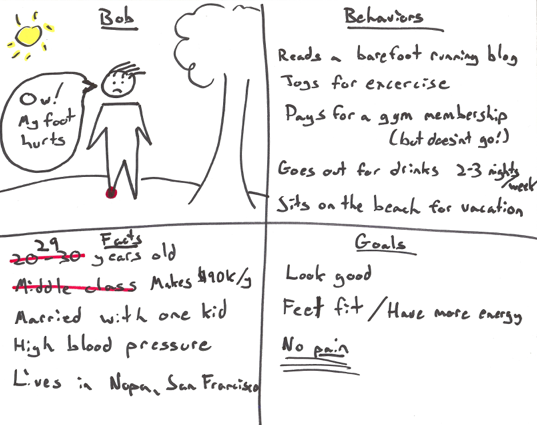 Bob
Ow!
My foot
hurts
Behaviors
Reads a barefoot running blog
Jogs for excercise
Pays for a gym membership
(but doesn't go!)
Goes out for drinks 2-3 nights/week
Sits on the beach for vacation
Facts
29
20-30 years old
Middle class Makes $90k/y
Married with one kid
High blood pressure
Lives in Nopa, San Francisco
Goals
Look good
Feel fit / Have more energy
No pain